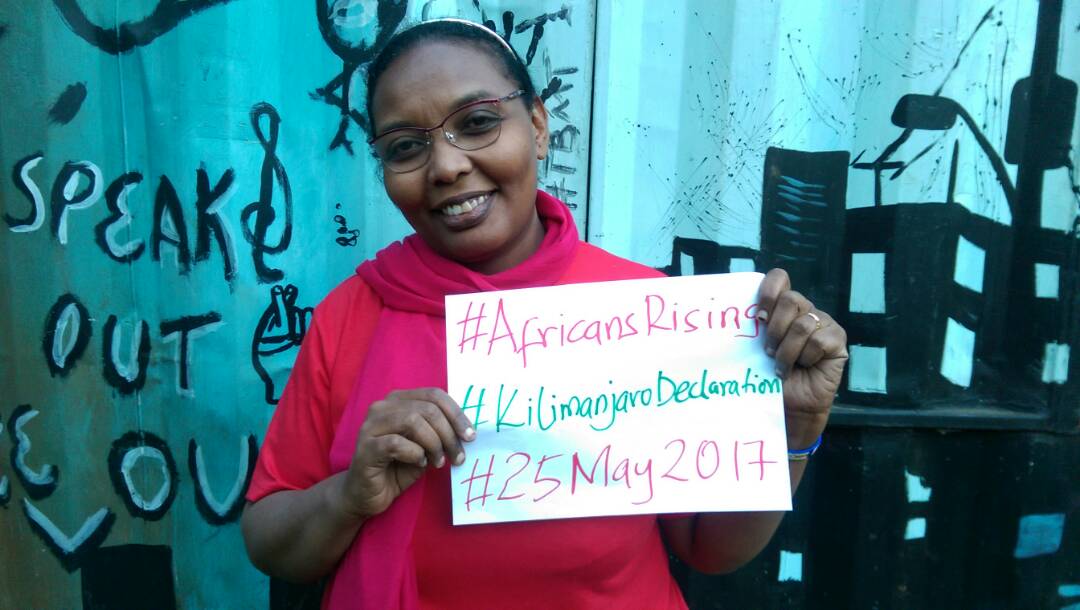 SPEAK
OUT
OU
#AfricansRising
#KilimanjaroDeclaration
#25May2017